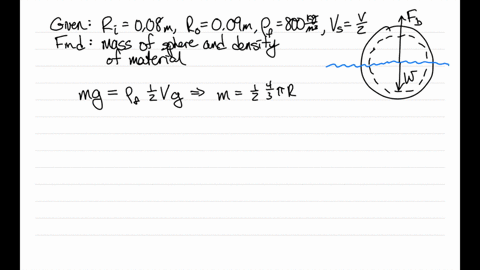 Given: Ri = 0,08m, Ro = 0.09m, ρf = 800 kg/m³, Vs = V/2
Find: mass of sphere and density
of material
FB
W
mg = ρf ½ V g ⇒ m = ½ 4/3 π R